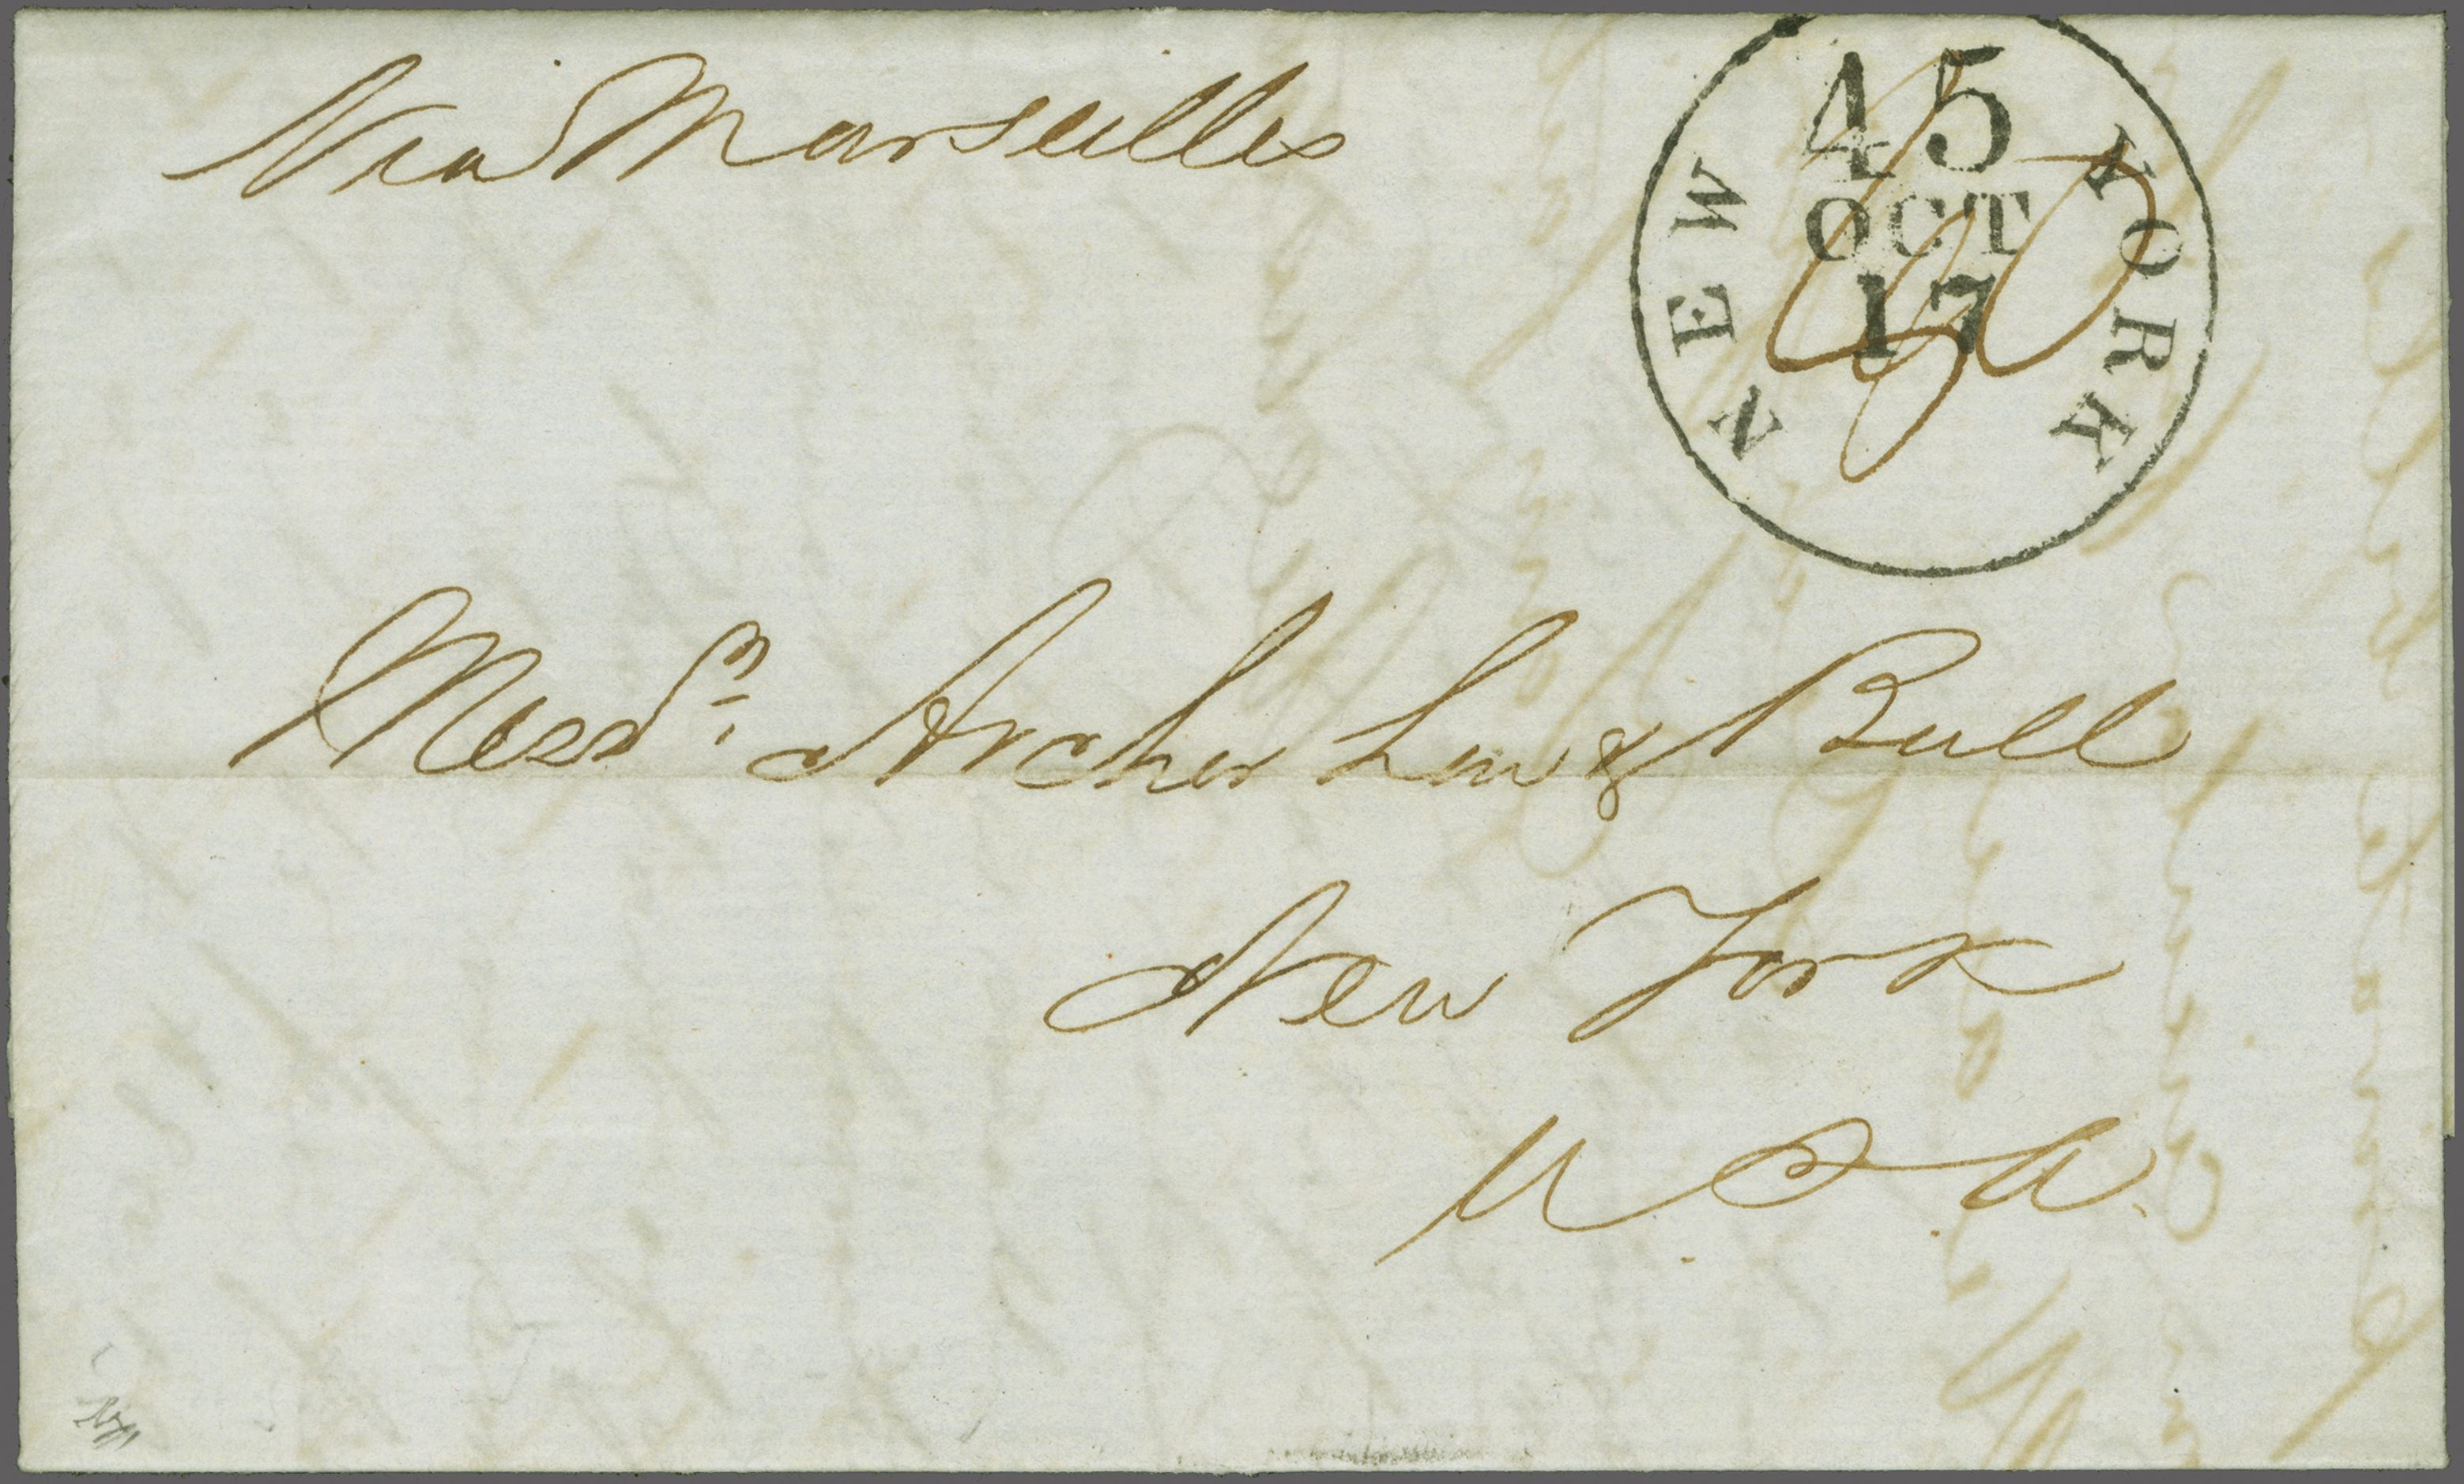 Via Marseilles
45
OCT
17
NEW YORK
Messrs. Archer & Bull
New York
U. S. A.